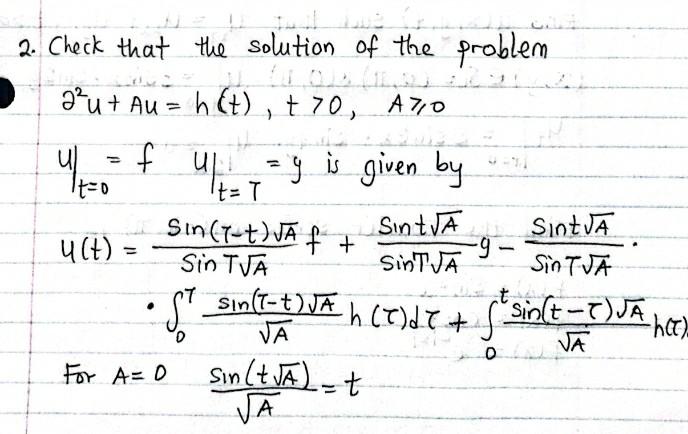 2. Check that the solution of the problem
∂²u + Au = h(t) , t > 0, A ⩾ 0
u|t=0 = f u|t=T = y is given by
u(t) = Sin(T-t)√A / Sin T√A f + Sin t√A / Sin T√A y - Sin t√A / Sin T√A ·
· ∫₀ᵀ sin(T-t)√A / √A h(τ)dτ + ∫₀ᵗ sin(t-τ)√A / √A h(τ)
For A = 0 Sin(t√A) / √A = t